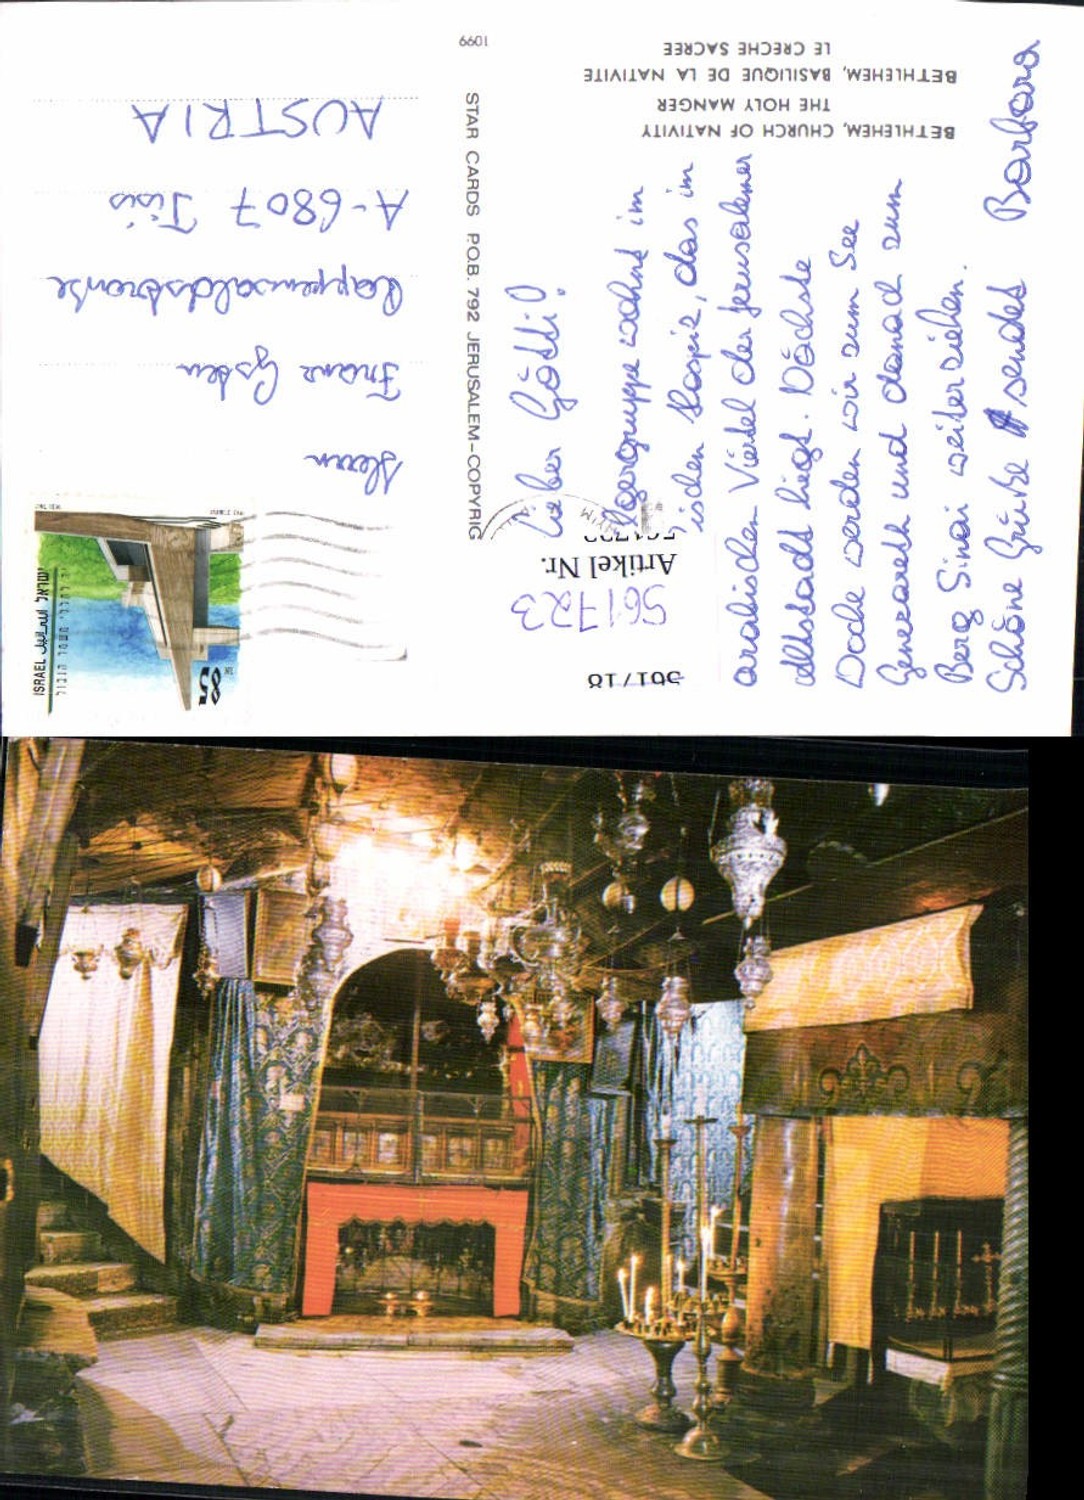 BETHLEHEM, CHURCH OF NATIVITY
THE HOLY MANGER
BETHLEHEM, BASILIQUE DE LA NATIVITE
LE CRECHE SACREE
1099
STAR CARDS P.O.B. 792 JERUSALEM-COPYRIG
Lieber Götti!
gruppe wohnt im
ischen Hospiz, das im
arabischen Viertel der Jerusalemer
Altstadt liegt. Nächste
Woche werden wir zum See
Genezareth und danach zum
Berg Sinai weiterziehen.
Schöne Grüße sendet Barbara
Herrn
Franz
Kappenwaldstraße
A-6807 Tisis
AUSTRIA
Artikel Nr.
561723
ISRAEL اسرائيل ישראל
85